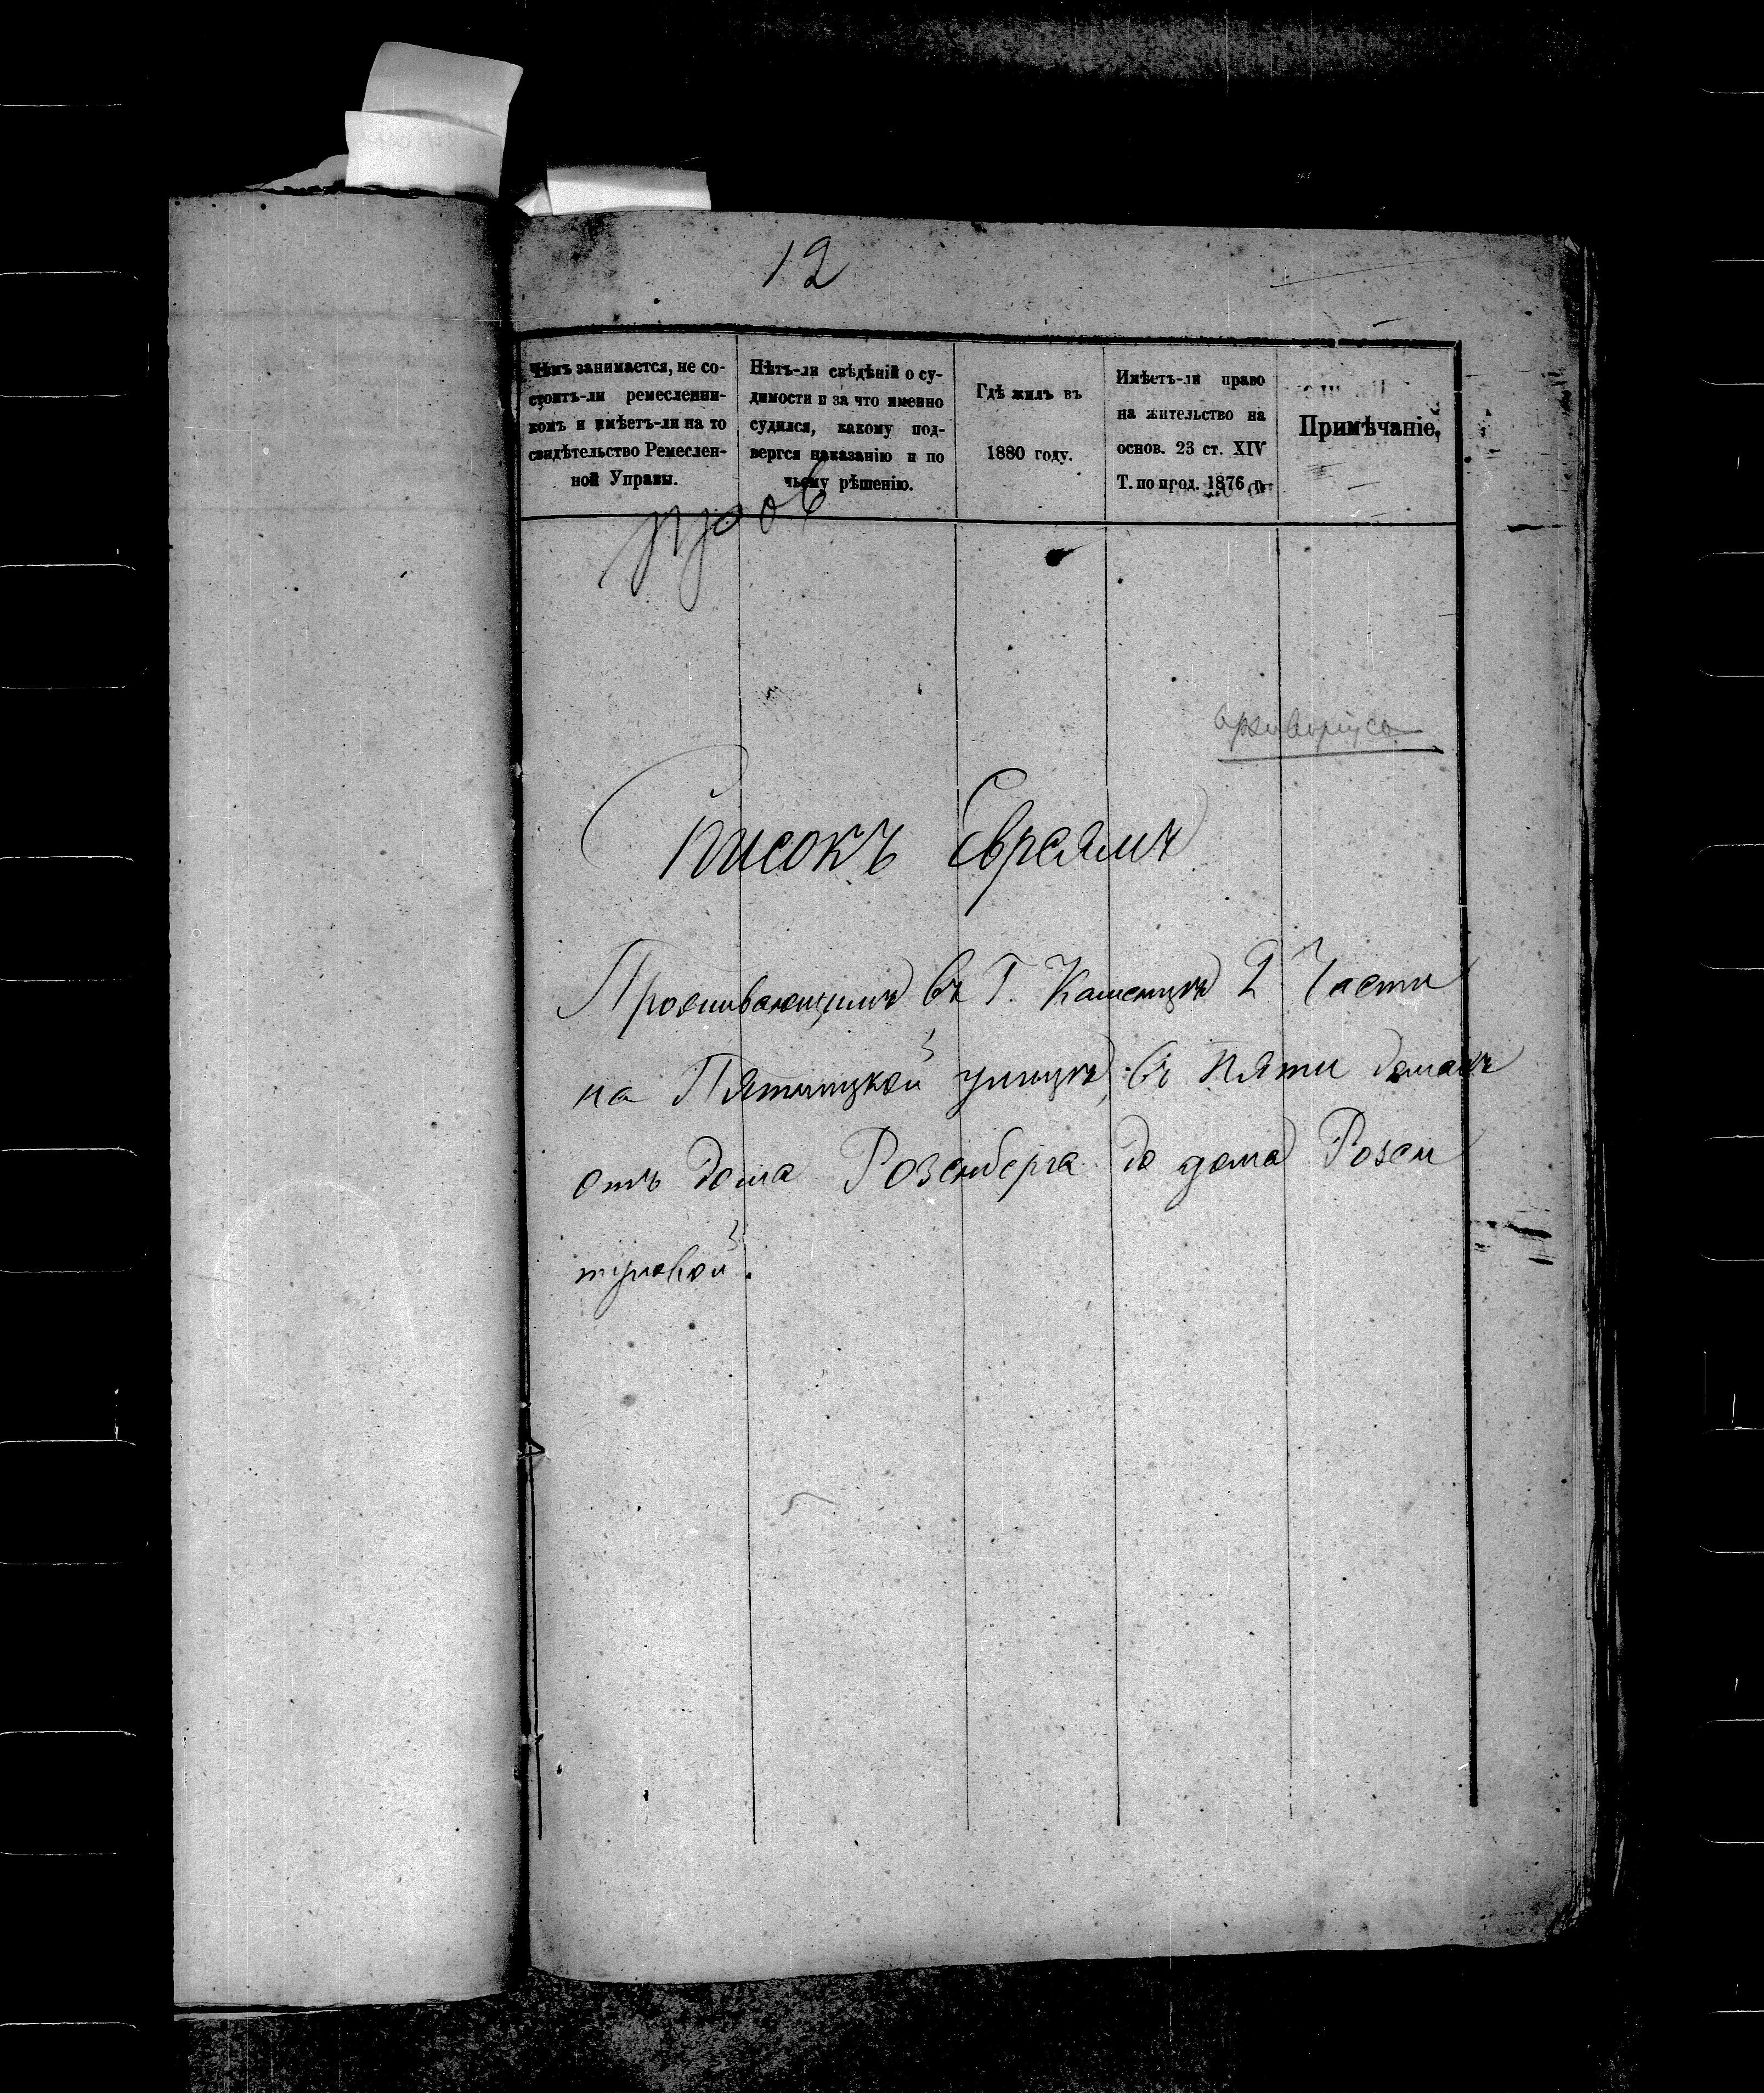 12
Чѣмъ занимается, не со-
стоитъ-ли ремесленни-
комъ и имѣетъ-ли на то
свидѣтельство Ремеслен-
ной Управы.
Нѣтъ-ли свѣдѣній о су-
димости и за что именно
судился, какому под-
вергся наказанію и по
чьему рѣшенію.
Гдѣ жилъ въ
1880 году.
Имѣетъ-ли право
на жительство на
основ. 23 ст. XIV
Т. по прод. 1876 г.
Примѣчаніе.
Списокъ Евреямъ
Проживающимъ въ Г. Каменцѣ 2 Части
на Пятницкой улицѣ, въ пяти домахъ
отъ дома Розенберга до дома Розен
туловой.